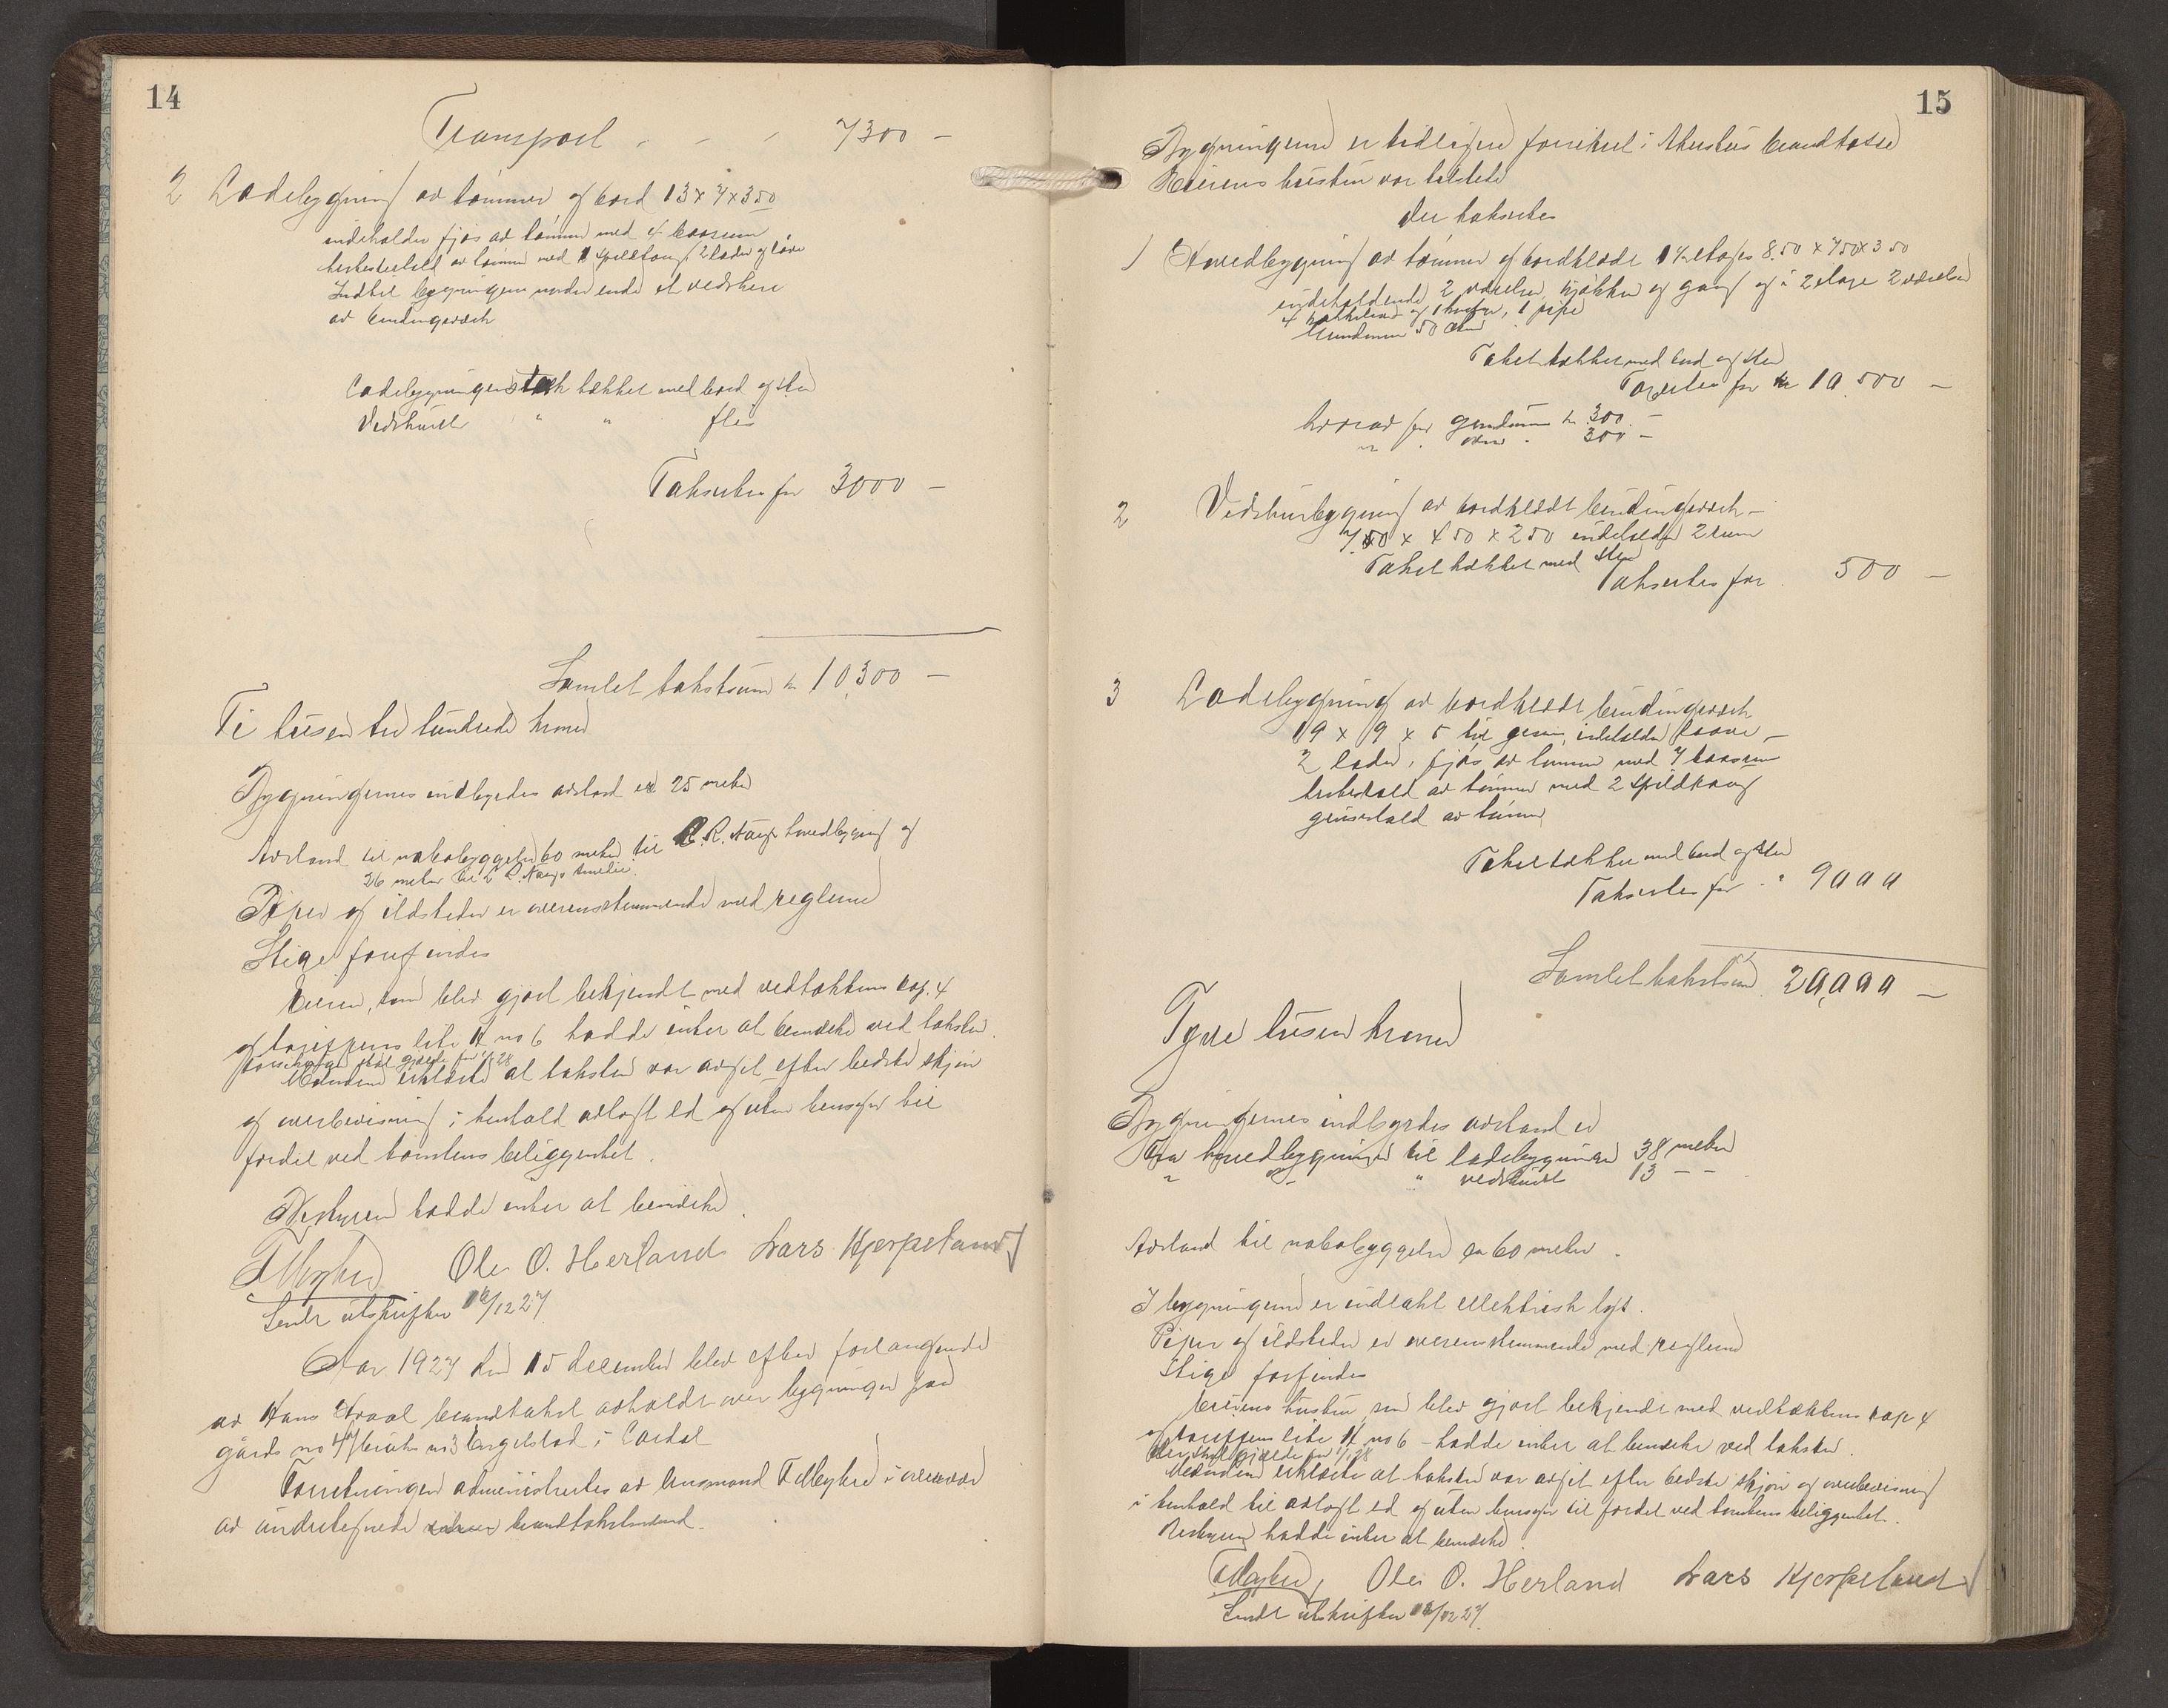 14
Transport - - - 7300 -
2 Ladebygning av tømmer og bord 13 x 7 x 350
indeholder fjøs av tømmer med 4 baasrum
hestestald av tømmer med 1 spilltaug 2 lader og løve
Indtil bygningen under ende et vedskur
av bindingsverk
Ladebygningens tak tækket med bord og sten
Vedskuret " " flis
Takseres for 3000 -
Samlet takstsum kr 10,300 -
Ti tusen tre hundrede kroner
Bygningernes indbyrdes avstand er 25 meter
Avstand til nabobygggelse 60 meter til R. hovedbygning og
26 meter til
Piper og ildsteder er overensstemmende med reglerne
Stige forefindes
Eieren, som blev gjort bekjendt med vedtækternes kap. 4
og tariffens lite H no 6 hadde intet at bemerke ved taksten.
skal gjælde fra 1/1 28
Mændene erklærte at taksten var avgit efter bedste skjøn
og overbevisning i henhold avlagt ed og uten hensyn til
fordel ved tomtens beliggenhet.
Bestyreren hadde intet at bemerke.
Ole O. Herland Lars Kjerpeland
Sendt utskrifter 16/12 27.
Aar 1927 den 15 december blev efter forlangende
av Hans brandtakst avholdt over bygninger paa
gårds no 47 bruks no 3 Engelstad i
Forretningen administrertes av lensmand i overvær
av undertegnede brandtakstmænd.
15
Bygningerne er tidligere forsikret i brandkasse
Eierens hustru var tilstede
Der takseres
1) Hovedbygning av tømmer og bordklædt 1½ etages 8.50 x 750 x 350
indeholdende 2 værelser, kjøkken og gang og i 2 etage 2 værelser
4 og 1 komfyr, 1 pipe
Grundmur 50 cm
Taket tækket med bord og sten
Takseres for kr 10.500 -
hvorav for grundmur kr 300 -
" " ovne " 300 -
2 Vedskurbygning av bordklædt bindingsverk -
7.50 x 450 x 250 indeholder 2 rum
Taket tækket med sten
Takseres for 500 -
3 Ladebygning av bordklædt bindingsverk
19 x 9 x 5 til gesims, indeholder laave -
2 lader, fjøs av tømmer med 7 baasrum
hestestald av tømmer med 2 spiltaug
grisestald av tømmer
Taket tækket med bord og sten
Takseres for " 9000
Samlet takstsum 20,000 -
Tyve tusen kroner
Bygningernes indbyrdes avstand er
Fra hovedbygningen til ladebygningen 38 meter
" " " vedskuret 13 - -
Avstand til nabobyggelse er 60 meter.
I bygningerne er indlakt elektrisk lys.
Piper og ildsteder er overensstemmende med reglerne
Stige forfindes
Eierens hustru som blev gjort bekjendt med vedtækternes kap 4
og tariffens lite H no 6 - hadde intet at bemerke ved taksten.
skal gjælde fra 1/1 28
Mændene erklærte at taksten var avgit efter bedste skjøn og overbevisning
i henhold til avlagt ed og uten hensyn til fordel ved tomtens beliggenhet.
Bestyreren hadde intet at bemerke.
Ole O. Herland Lars Kjerpeland
Sendt utskrifter 16/12 27.